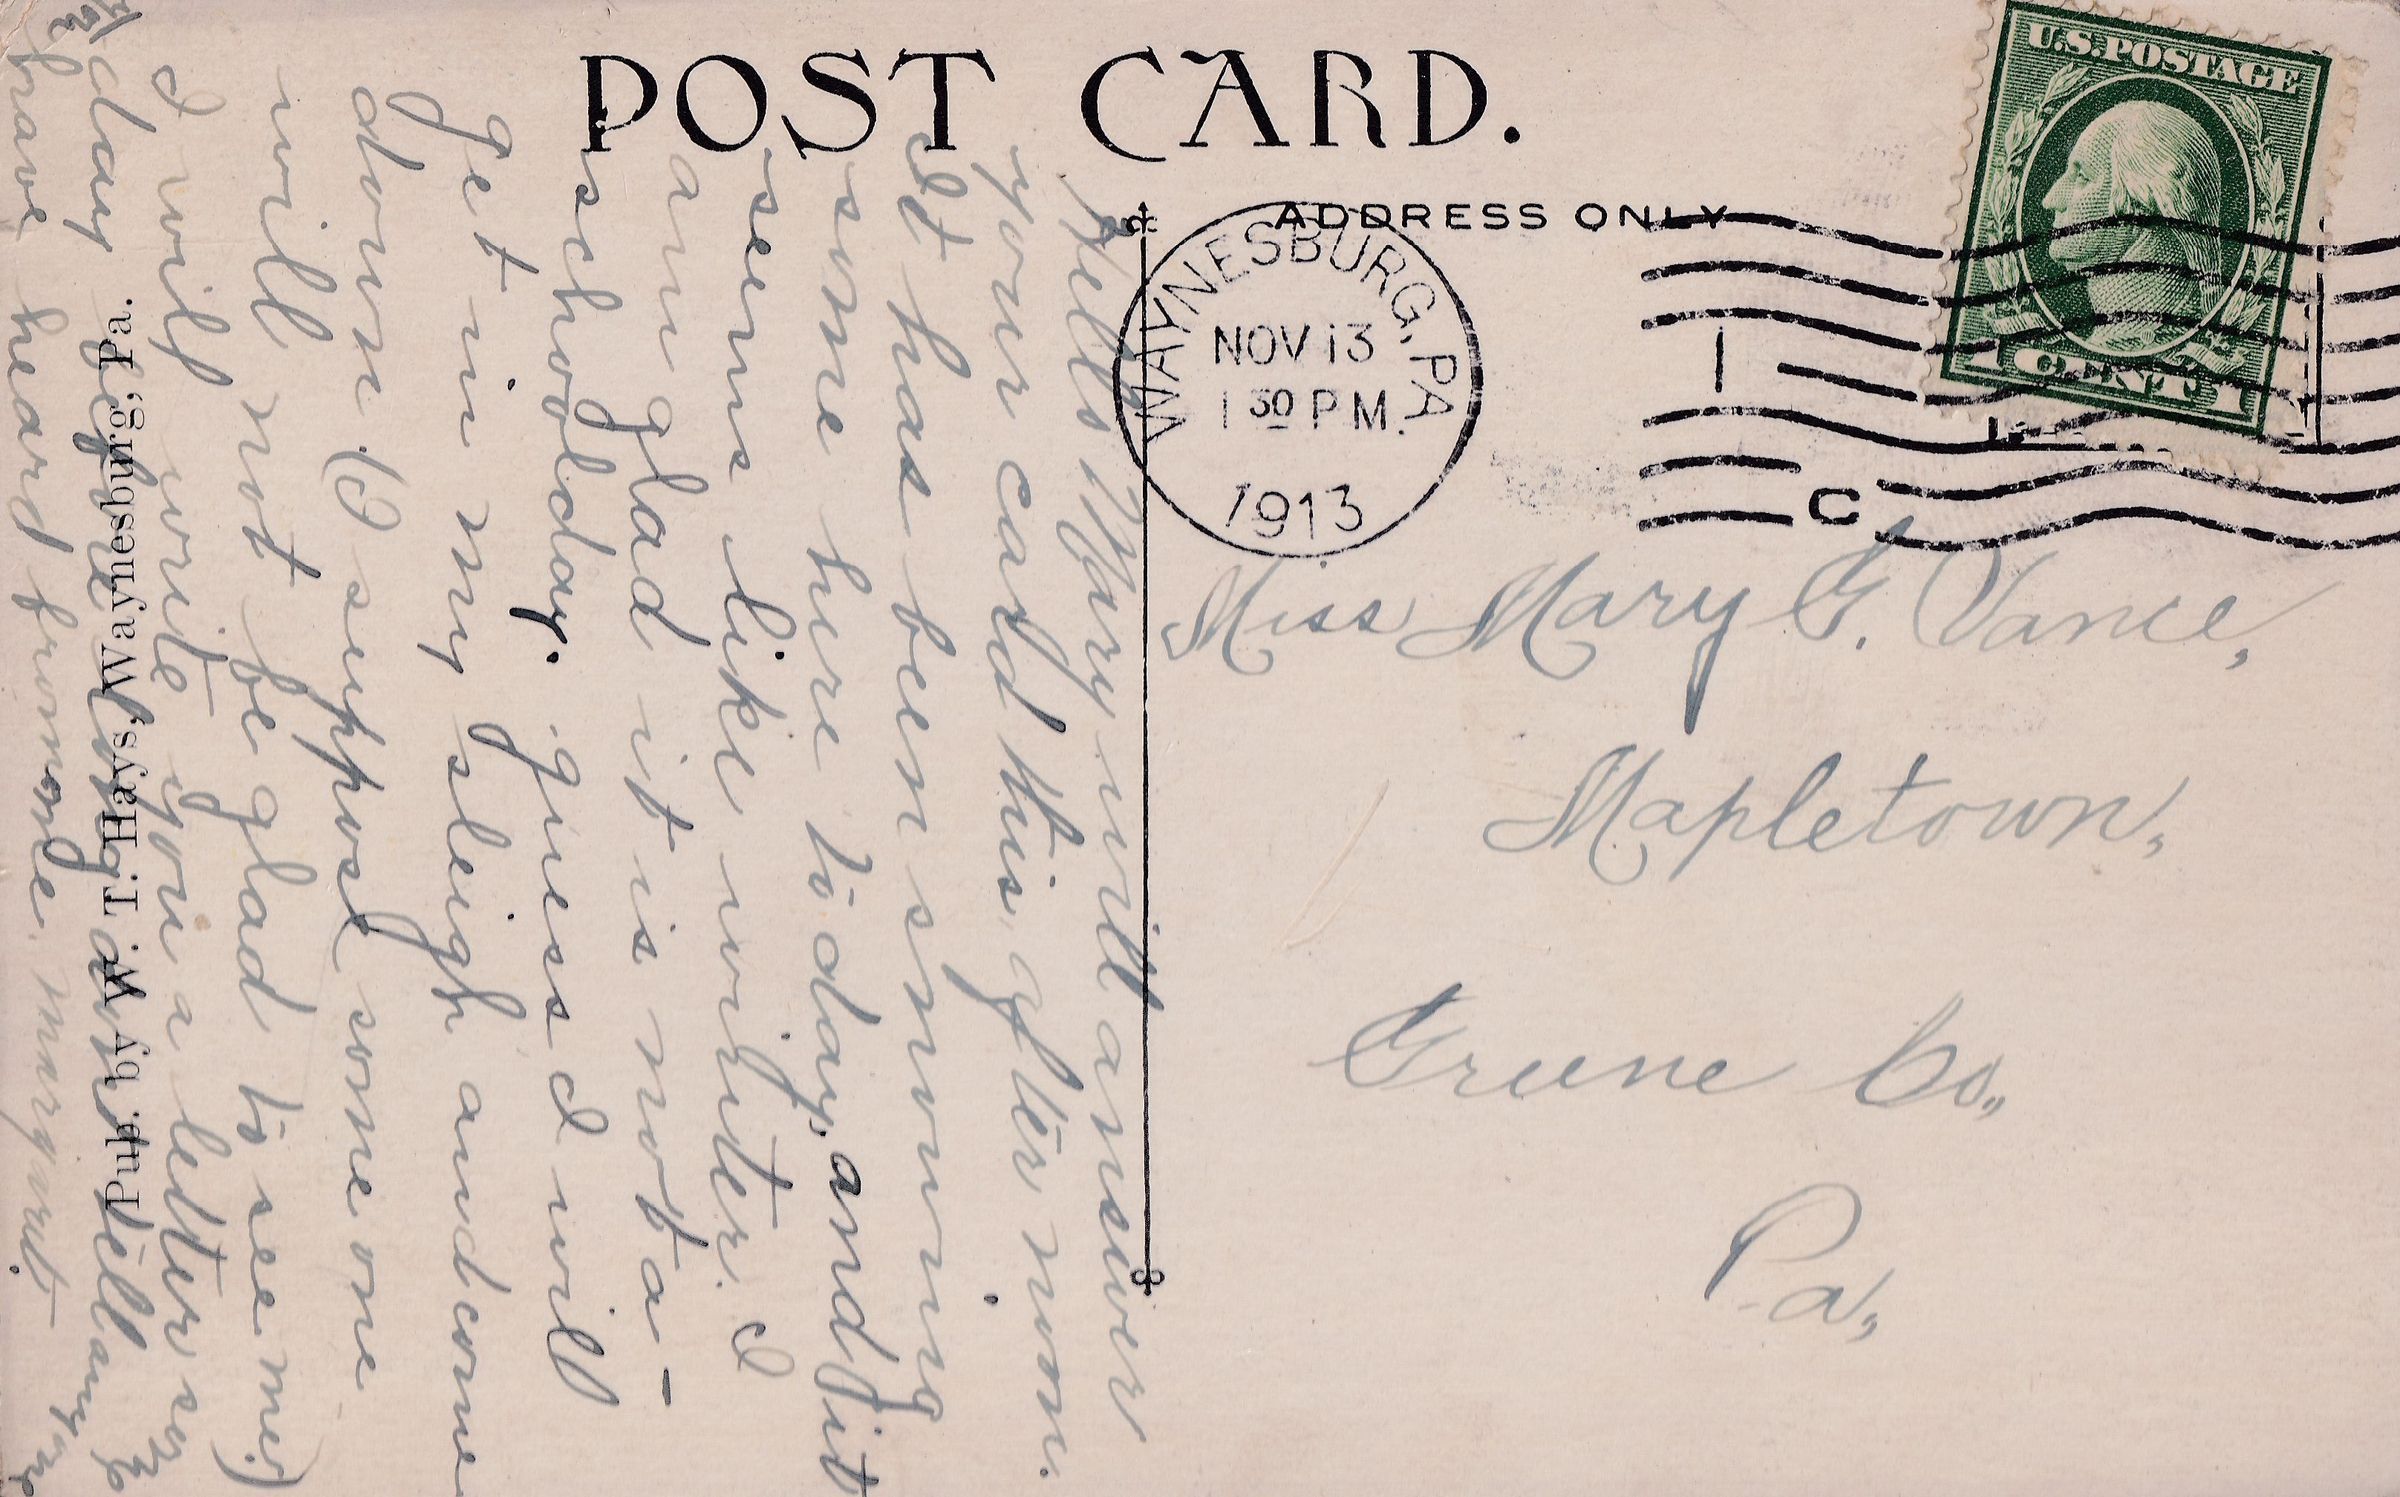 POST CARD.
ADDRESS ONLY
U.S. POSTAGE
1 CENT 1
WAYNESBURG, PA.
NOV 13
1 30 PM.
1913
1
C
Miss Mary G. Vance,
Mapletown,
Greene Co.,
Pa.,
Hello Mary will answer
your card this after noon.
It has been snowing
some here to day, and it
seems like winter. I
am glad it is not a-
schoolday. guess I will
get in my sleigh and come
down. (I suppose some one
will not be glad to see me.)
I will write you a letter
day before long and tell any
have heard from one.
Pub. by W. T. Hays, Waynesburg, Pa.